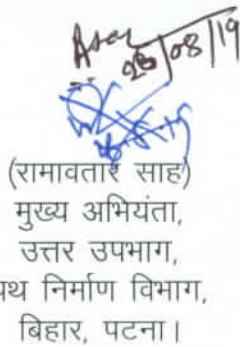 28/08/19
(रामावतार साह)
मुख्य अभियंता,
उत्तर उपभाग,
पथ निर्माण विभाग,
बिहार, पटना।